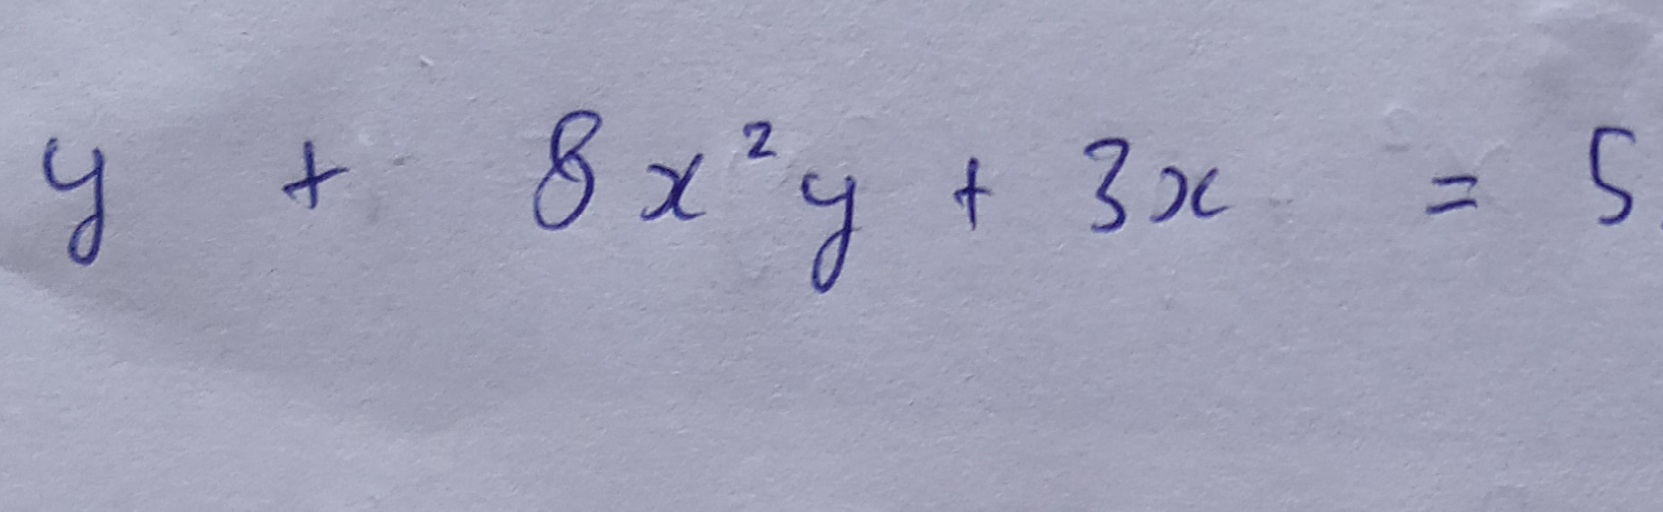 y + 8x²y + 3x = 5